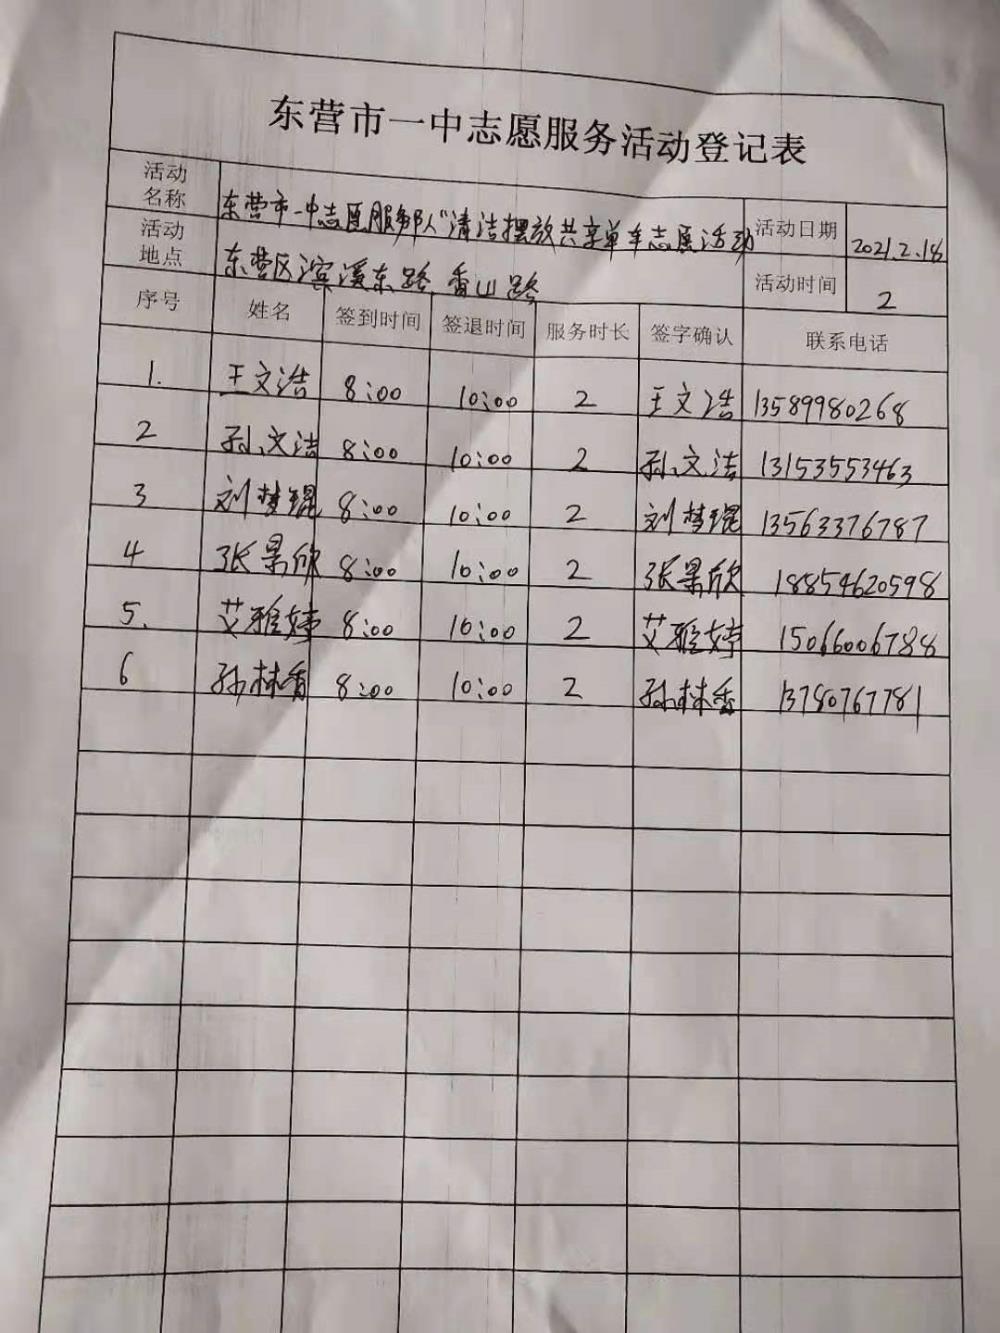 东营市一中志愿服务活动登记表
活动名称 东营市一中志愿服务队"清洁摆放共享单车志愿活动 活动日期 2021.2.18
活动地点 东营区滨溪东路,香山路 活动时间 2
序号 姓名 签到时间 签退时间 服务时长 签字确认 联系电话
1. 王文浩 8:00 10:00 2 王文浩 13589980268
2 孙文洁 8:00 10:00 2 孙文洁 13153553463
3 刘梦琨 8:00 10:00 2 刘梦琨 13563376787
4 张景欣 8:00 10:00 2 张景欣 18854620598
5. 艾雅婷 8:00 10:00 2 艾雅婷 15066006788
6 孙林香 8:00 10:00 2 孙林香 13780767781